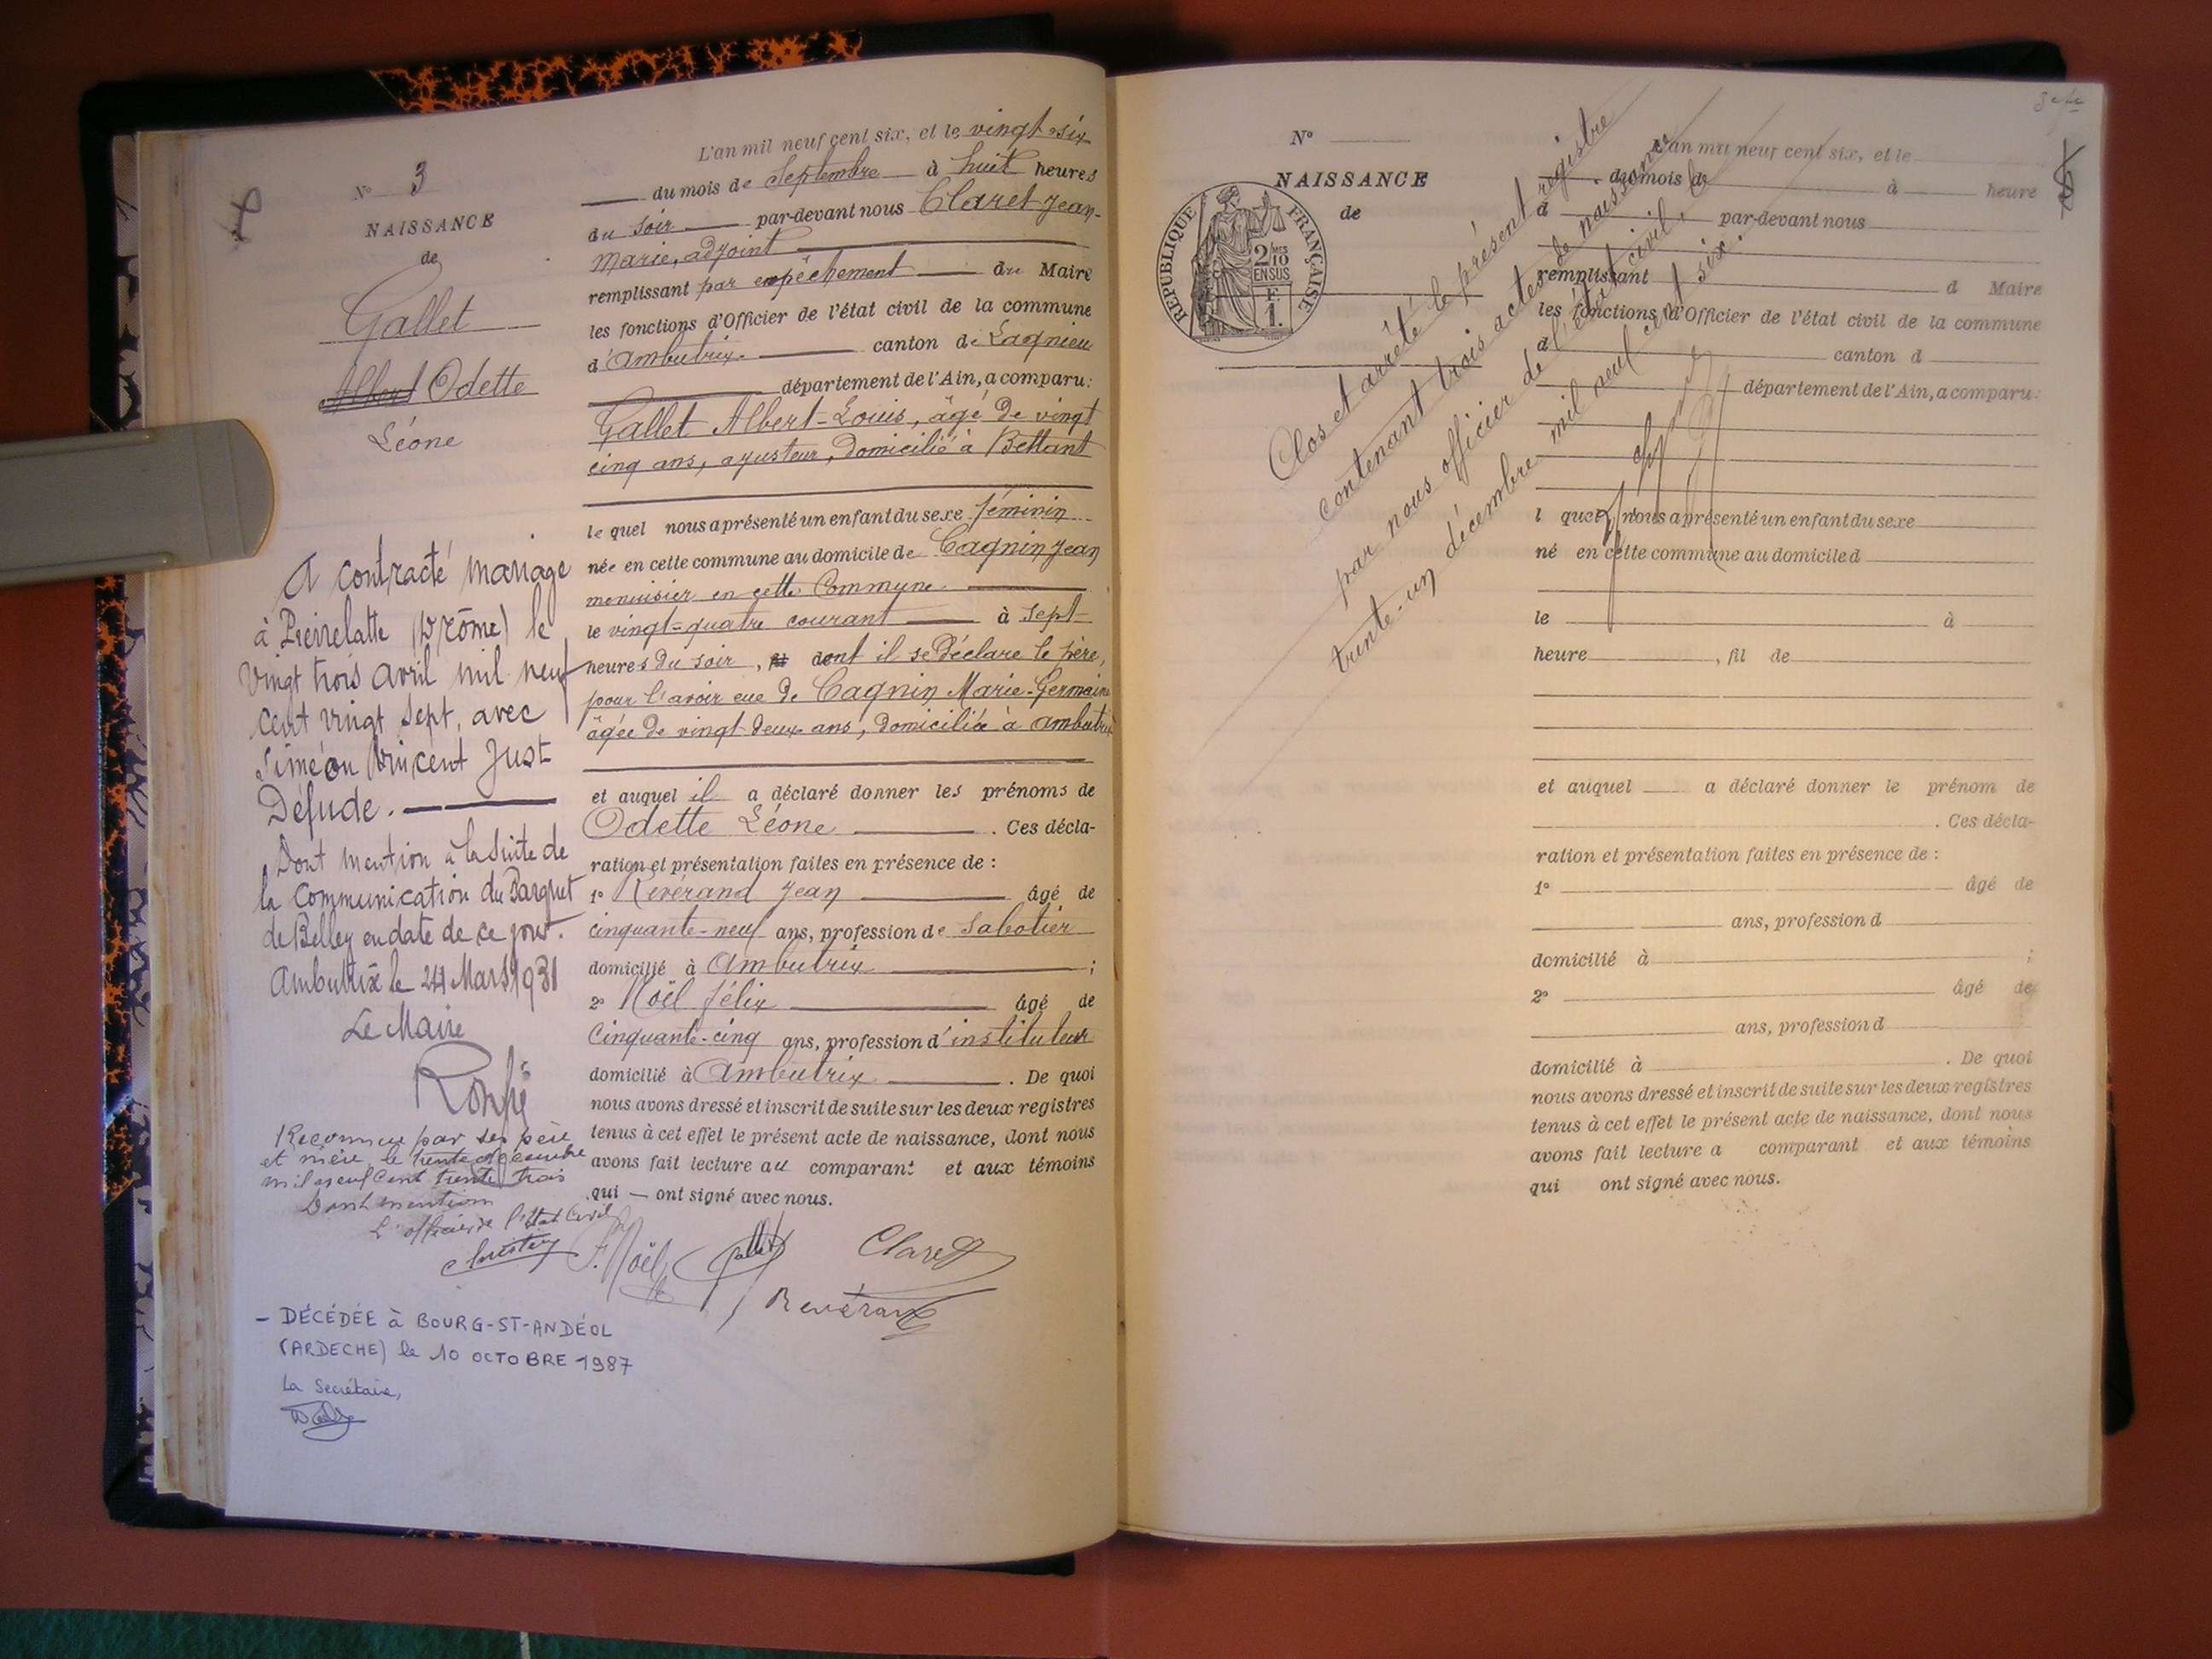 N° 3
NAISSANCE
de
Gallet
Albert Odette
Léone
A contracté mariage
à Pierrelatte (Drôme) le
vingt trois avril mil neuf
cent vingt sept, avec
Siméon Vincent Just
Défude.
Dont mention à la suite de
la Communication du Parquet
de Belley en date de ce jour.
Ambutrix le 24 Mars 1931
Le Maire
Reconnue par ses père
et mère le trente décembre
mil neuf cent trente trois
Dont mention
L'officier de l'Etat Civil
- DÉCÉDÉE à BOURG-ST-ANDÉOL
(ARDECHE) le 10 OCTOBRE 1987
La Secrétaire,
L'an mil neuf cent six, et le vingt-six
du mois de Septembre à huit heures
du soir par-devant nous Claret Jean-
Marie, adjoint
remplissant par empêchement du Maire
les fonctions d'Officier de l'état civil de la commune
d'Ambutrix. canton de Lagnieu
département de l'Ain, a comparu:
Gallet Albert-Louis, âgé de vingt
cinq ans, ajusteur, domicilié à Bettant
le quel nous a présenté un enfant du sexe féminin
née en cette commune au domicile de Cagnin Jean
menuisier en cette Commune
le vingt-quatre courant à sept
heures du soir, dont il se déclare le père,
pour l'avoir eue de Cagnin Marie-Germaine
âgée de vingt-deux ans, domiciliée à Ambutrix
et auquel il a déclaré donner les prénoms de
Odette Léone . Ces décla-
ration et présentation faites en présence de :
1° Révérand Jean âgé de
cinquante-neuf ans, profession de Sabotier
domicilié à Ambutrix ;
2° Noël Félix âgé de
Cinquante-cinq ans, profession d'instituteur
domicilié à Ambutrix . De quoi
nous avons dressé et inscrit de suite sur les deux registres
tenus à cet effet le présent acte de naissance, dont nous
avons fait lecture au comparant et aux témoins
qui — ont signé avec nous.
F. Noël Gallet Claret
Révérand
N°
NAISSANCE
de
RÉPUBLIQUE FRANÇAISE
2/10
EN SUS
F.
1.
Clos et arrêté le présent registre
contenant trois actes de naissance
par nous officier de l'état civil, le
trente-un décembre mil neuf cent six.
L'an mil neuf cent six, et le
du mois de à heure
d par-devant nous
remplissant d Maire
les fonctions d'Officier de l'état civil de la commune
d canton d
département de l'Ain, a comparu:
l quel nous a présenté un enfant du sexe
né en cette commune au domicile d
le à
heure , fil de
et auquel a déclaré donner le prénom de
. Ces décla-
ration et présentation faites en présence de :
1° âgé de
ans, profession d
domicilié à ;
2° âgé de
ans, profession d
domicilié à . De quoi
nous avons dressé et inscrit de suite sur les deux registres
tenus à cet effet le présent acte de naissance, dont nous
avons fait lecture a comparant et aux témoins
qui ont signé avec nous.